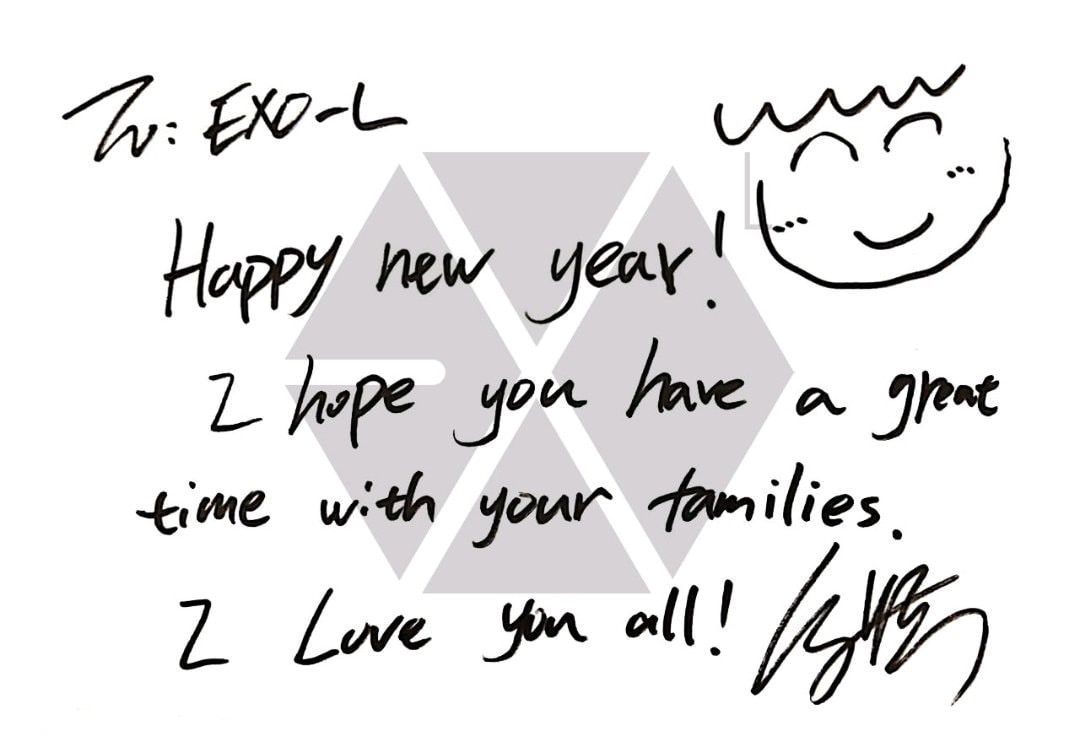 To: EXO-L
Happy new year!
I hope you have a great
time with your families.
I Love you all!